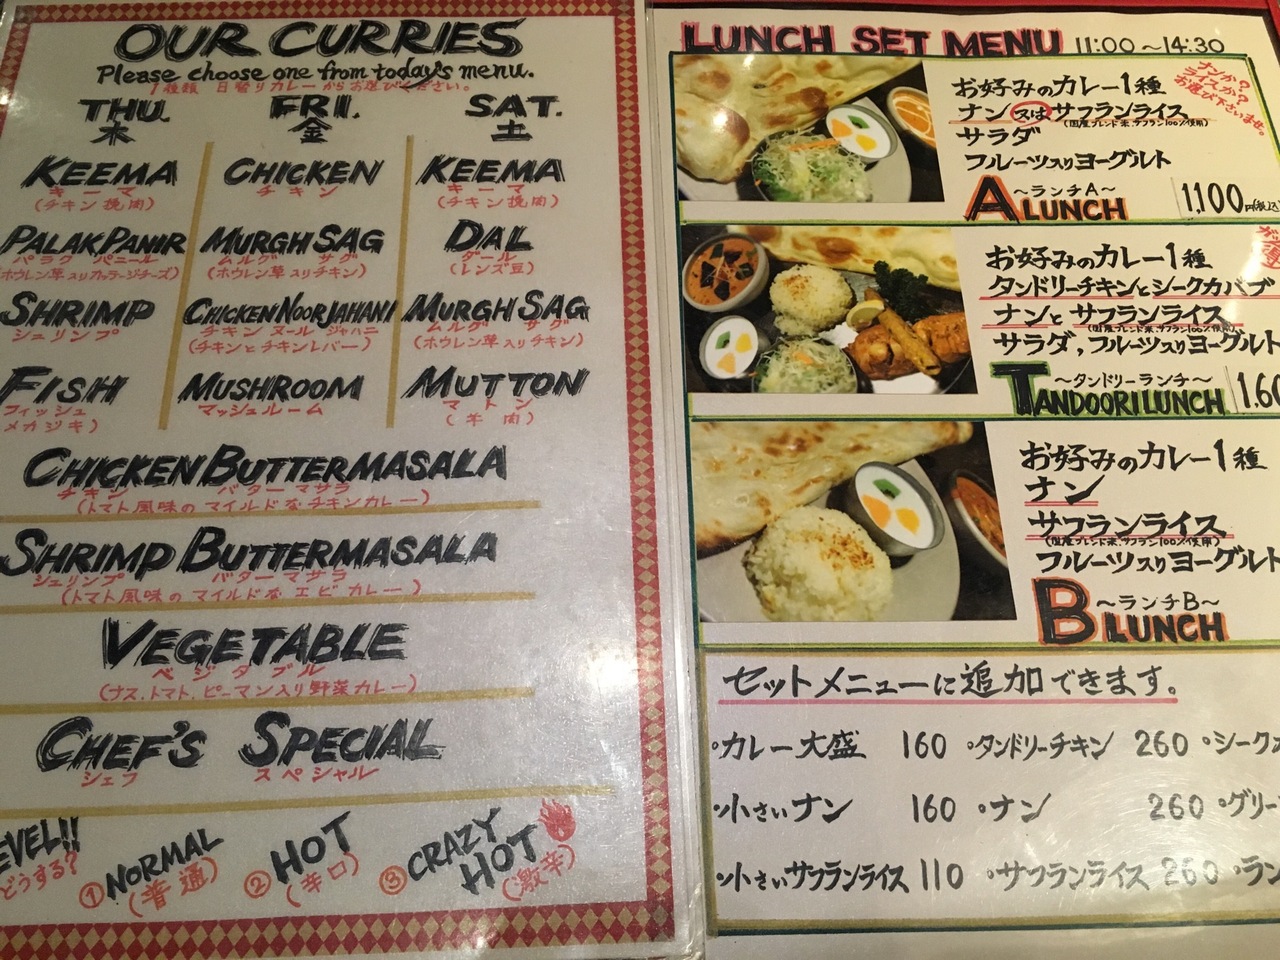 OUR CURRIES
Please choose one from today's menu.
1種類 日替りカレーからお選びください。
THU. FRI. SAT.
木 金 土
KEEMA CHICKEN KEEMA
キーマ チキン キーマ
(チキン挽肉) (チキン挽肉)
PALAK PANIR MURGH SAG DAL
パラク パニール ムルグ サグ ダール
(ホウレン草入りカッテージチーズ) (ホウレン草入りチキン) (レンズ豆)
SHRIMP CHICKEN NOORJAHANI MURGH SAG
シュリンプ チキン ヌール ジャハニ ムルグ サグ
(チキンとチキンレバー) (ホウレン草入りチキン)
FISH MUSHROOM MUTTON
フィッシュ マッシュルーム マトン
メカジキ) (羊肉)
CHICKEN BUTTERMASALA
チキン バターマサラ
(トマト風味のマイルドなチキンカレー)
SHRIMP BUTTERMASALA
シュリンプ バターマサラ
(トマト風味のマイルドなエビカレー)
VEGETABLE
ベジタブル
(ナス、トマト、ピーマン入り野菜カレー)
CHEF'S SPECIAL
シェフ スペシャル
EVEL!!
どうする?
①NORMAL ②HOT ③CRAZY HOT
(普通) (辛口) (激辛)
LUNCH SET MENU 11:00〜14:30
お好みのカレー1種
ナン又はサフランライス
(国産ブレンド米、サフラン100%使用)
サラダ
フルーツ入りヨーグルト
ナンか?
ライスか?
お選び下さいませ。
〜ランチA〜
A LUNCH 1,100円(税込)
お好みのカレー1種
タンドリーチキンとシークカバブ
ナンとサフランライス
(国産ブレンド米、サフラン100%使用)
サラダ,フルーツ入りヨーグルト
〜タンドリーランチ〜
TANDOORI LUNCH 1.60
お好みのカレー1種
ナン
サフランライス
(国産ブレンド米、サフラン100%使用)
フルーツ入りヨーグルト
〜ランチB〜
B LUNCH
セットメニューに追加できます。
・カレー大盛 160 ・タンドリーチキン 260 ・シーク
・小さいナン 160 ・ナン 260 ・グリー
・小さいサフランライス 110 ・サフランライス 260 ・ラン